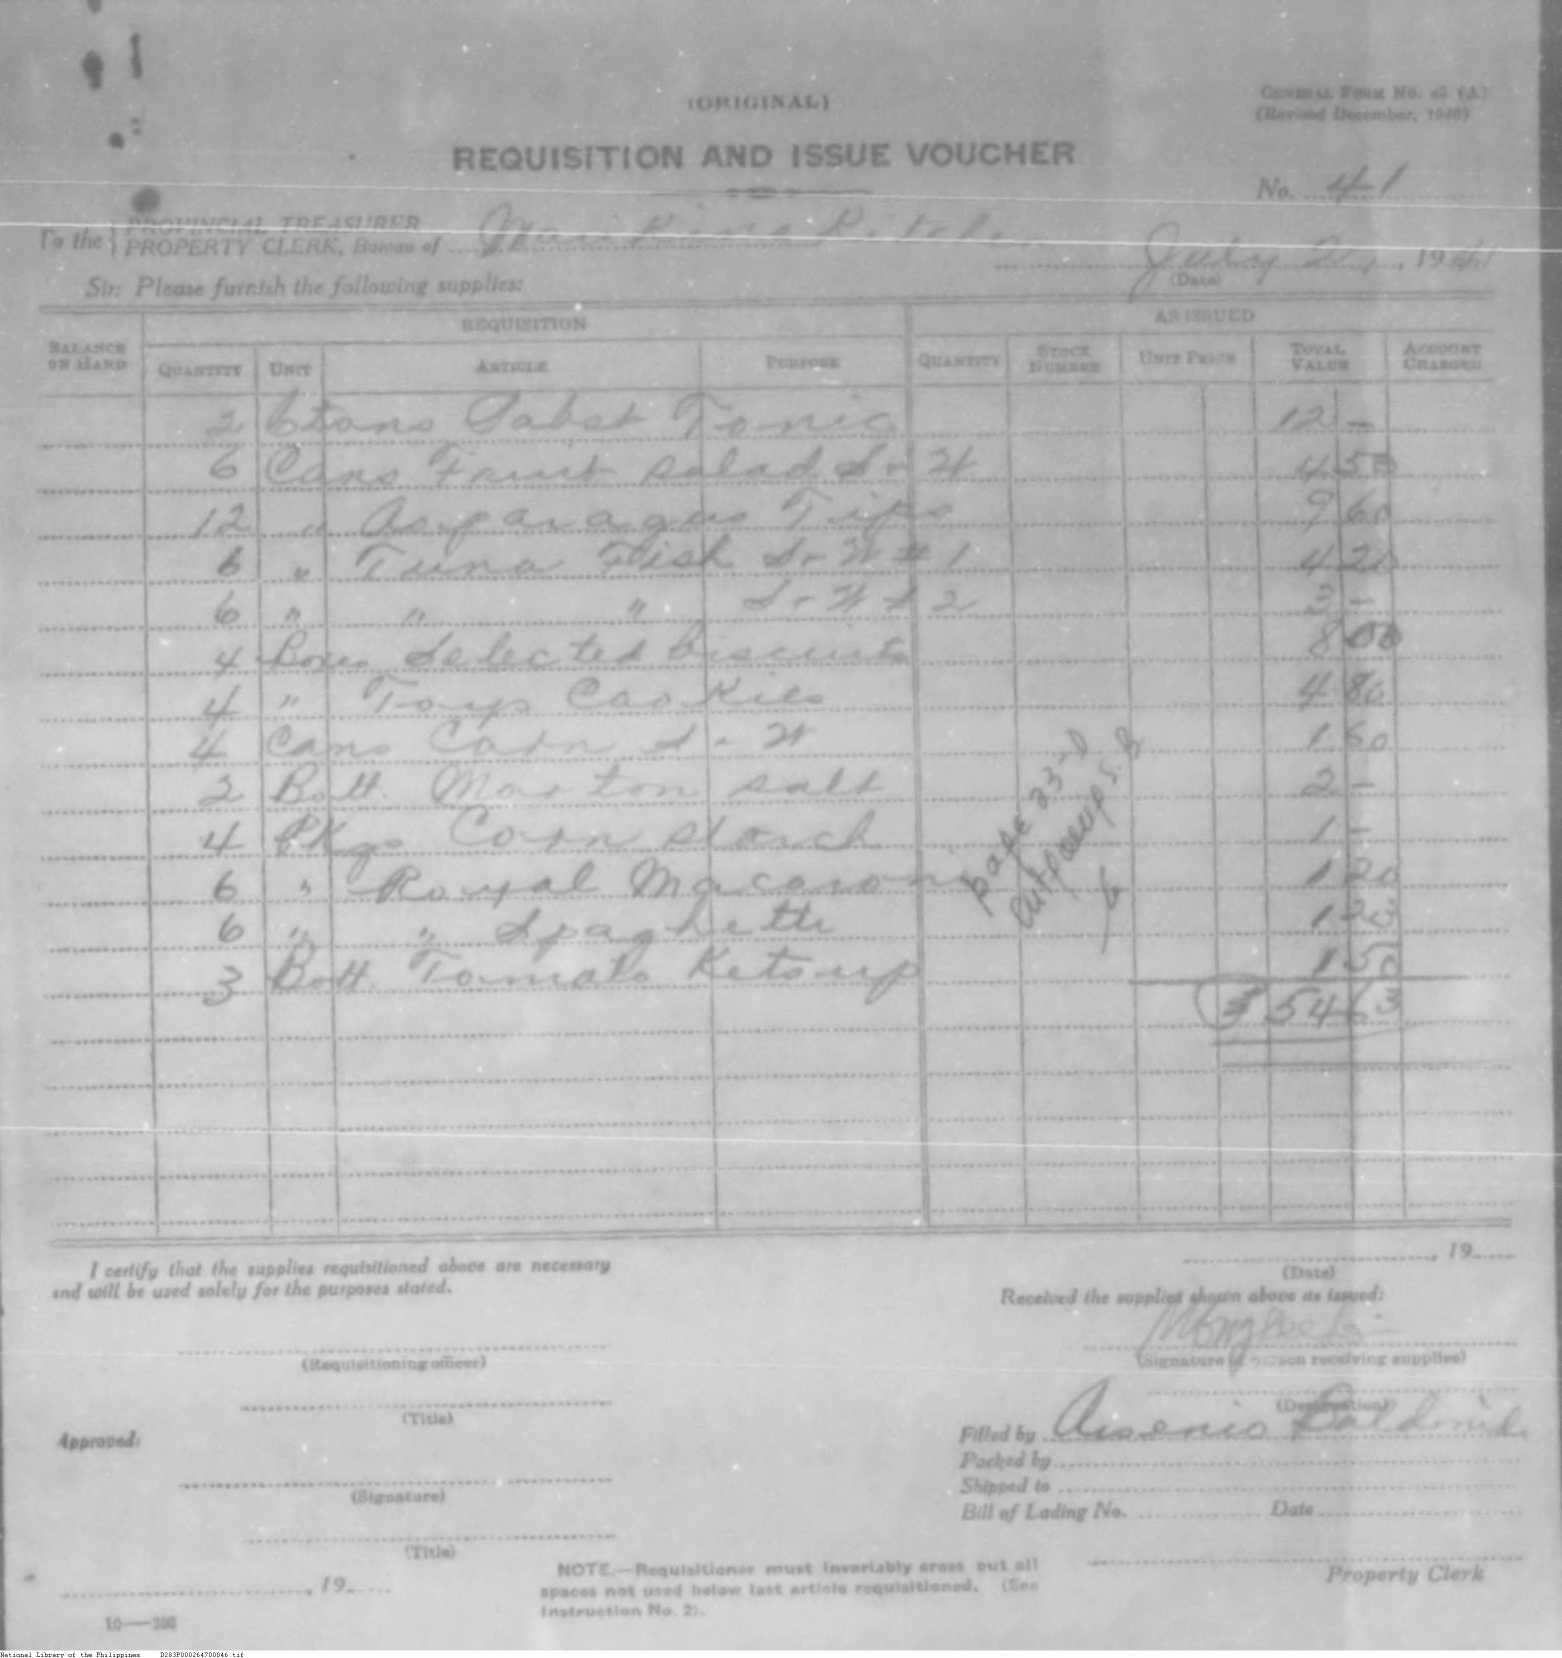 (ORIGINAL)
GENERAL FORM No. (A)
(Revised December, 19)
REQUISITION AND ISSUE VOUCHER
No. 41
To the { PROVINCIAL TREASURER
PROPERTY CLERK, Bureau of
July 2, 1941
(Date)
Sir: Please furnish the following supplies:
REQUISITION AS ISSUED
BALANCE ON HAND QUANTITY UNIT ARTICLE PURPOSE QUANTITY STOCK NUMBER UNIT PRICE TOTAL VALUE ACCOUNT CHARGED
2 Pabst Tonic 12 -
6 Cans Fruit Salad S-W 4 50
12 " Asparagus Tips 9 60
6 " Tuna Fish S-W #1 4 20
6 " " " S-W # 2 3 -
4 Boxes Selected biscuits 8 00
4 " Cookies 4 80
4 Cans Corn S-W 1 60
2 Bott. Morton salt 2 -
4 Pkgs Corn starch 1 -
6 " Royal Macaroni 1 20
6 " " Spaghetti 1 20
3 Bott. Tomato Ketsup 1 50
54 63
page 33-D
I certify that the supplies requisitioned above are necessary
and will be used solely for the purposes stated.
, 19
(Date)
Received the supplies shown above as issued:
(Requisitioning officer)
(Signature of person receiving supplies)
(Title)
(Designation)
Approved:
Filled by Arsenio
Packed by
Shipped to
(Signature)
Bill of Lading No. Date
(Title)
NOTE.—Requisitioner must invariably cross out all
spaces not used below last article requisitioned. (See
Instruction No. 2).
Property Clerk
, 19
National Library of the Philippines D283P000264700046.tif